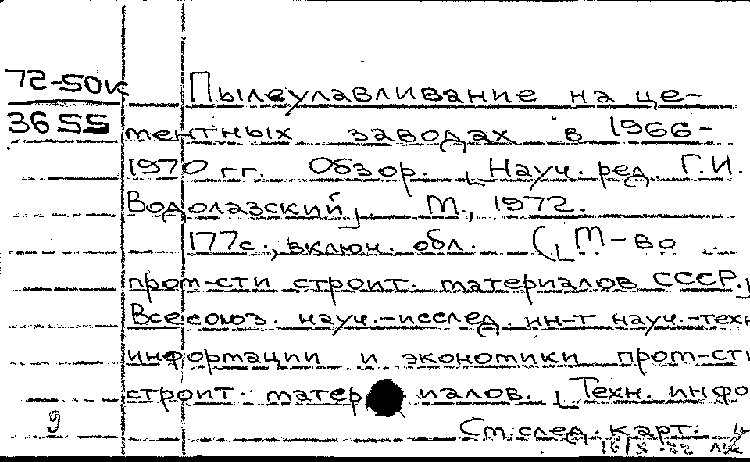 72-50к
3655
Пылеулавливание на це-
ментных заводах в 1966-
1970 гг. Обзор. [Науч. ред. Г.И.
Водолазский]. М., 1972.
177с., включ. обл. ([М-во
пром-сти строит. материалов СССР.]
Всесоюз. науч.-исслед. ин-т науч.-техн
информации и экономики пром-сти
строит. материалов. [Техн. инфо
9
См.след. карт.